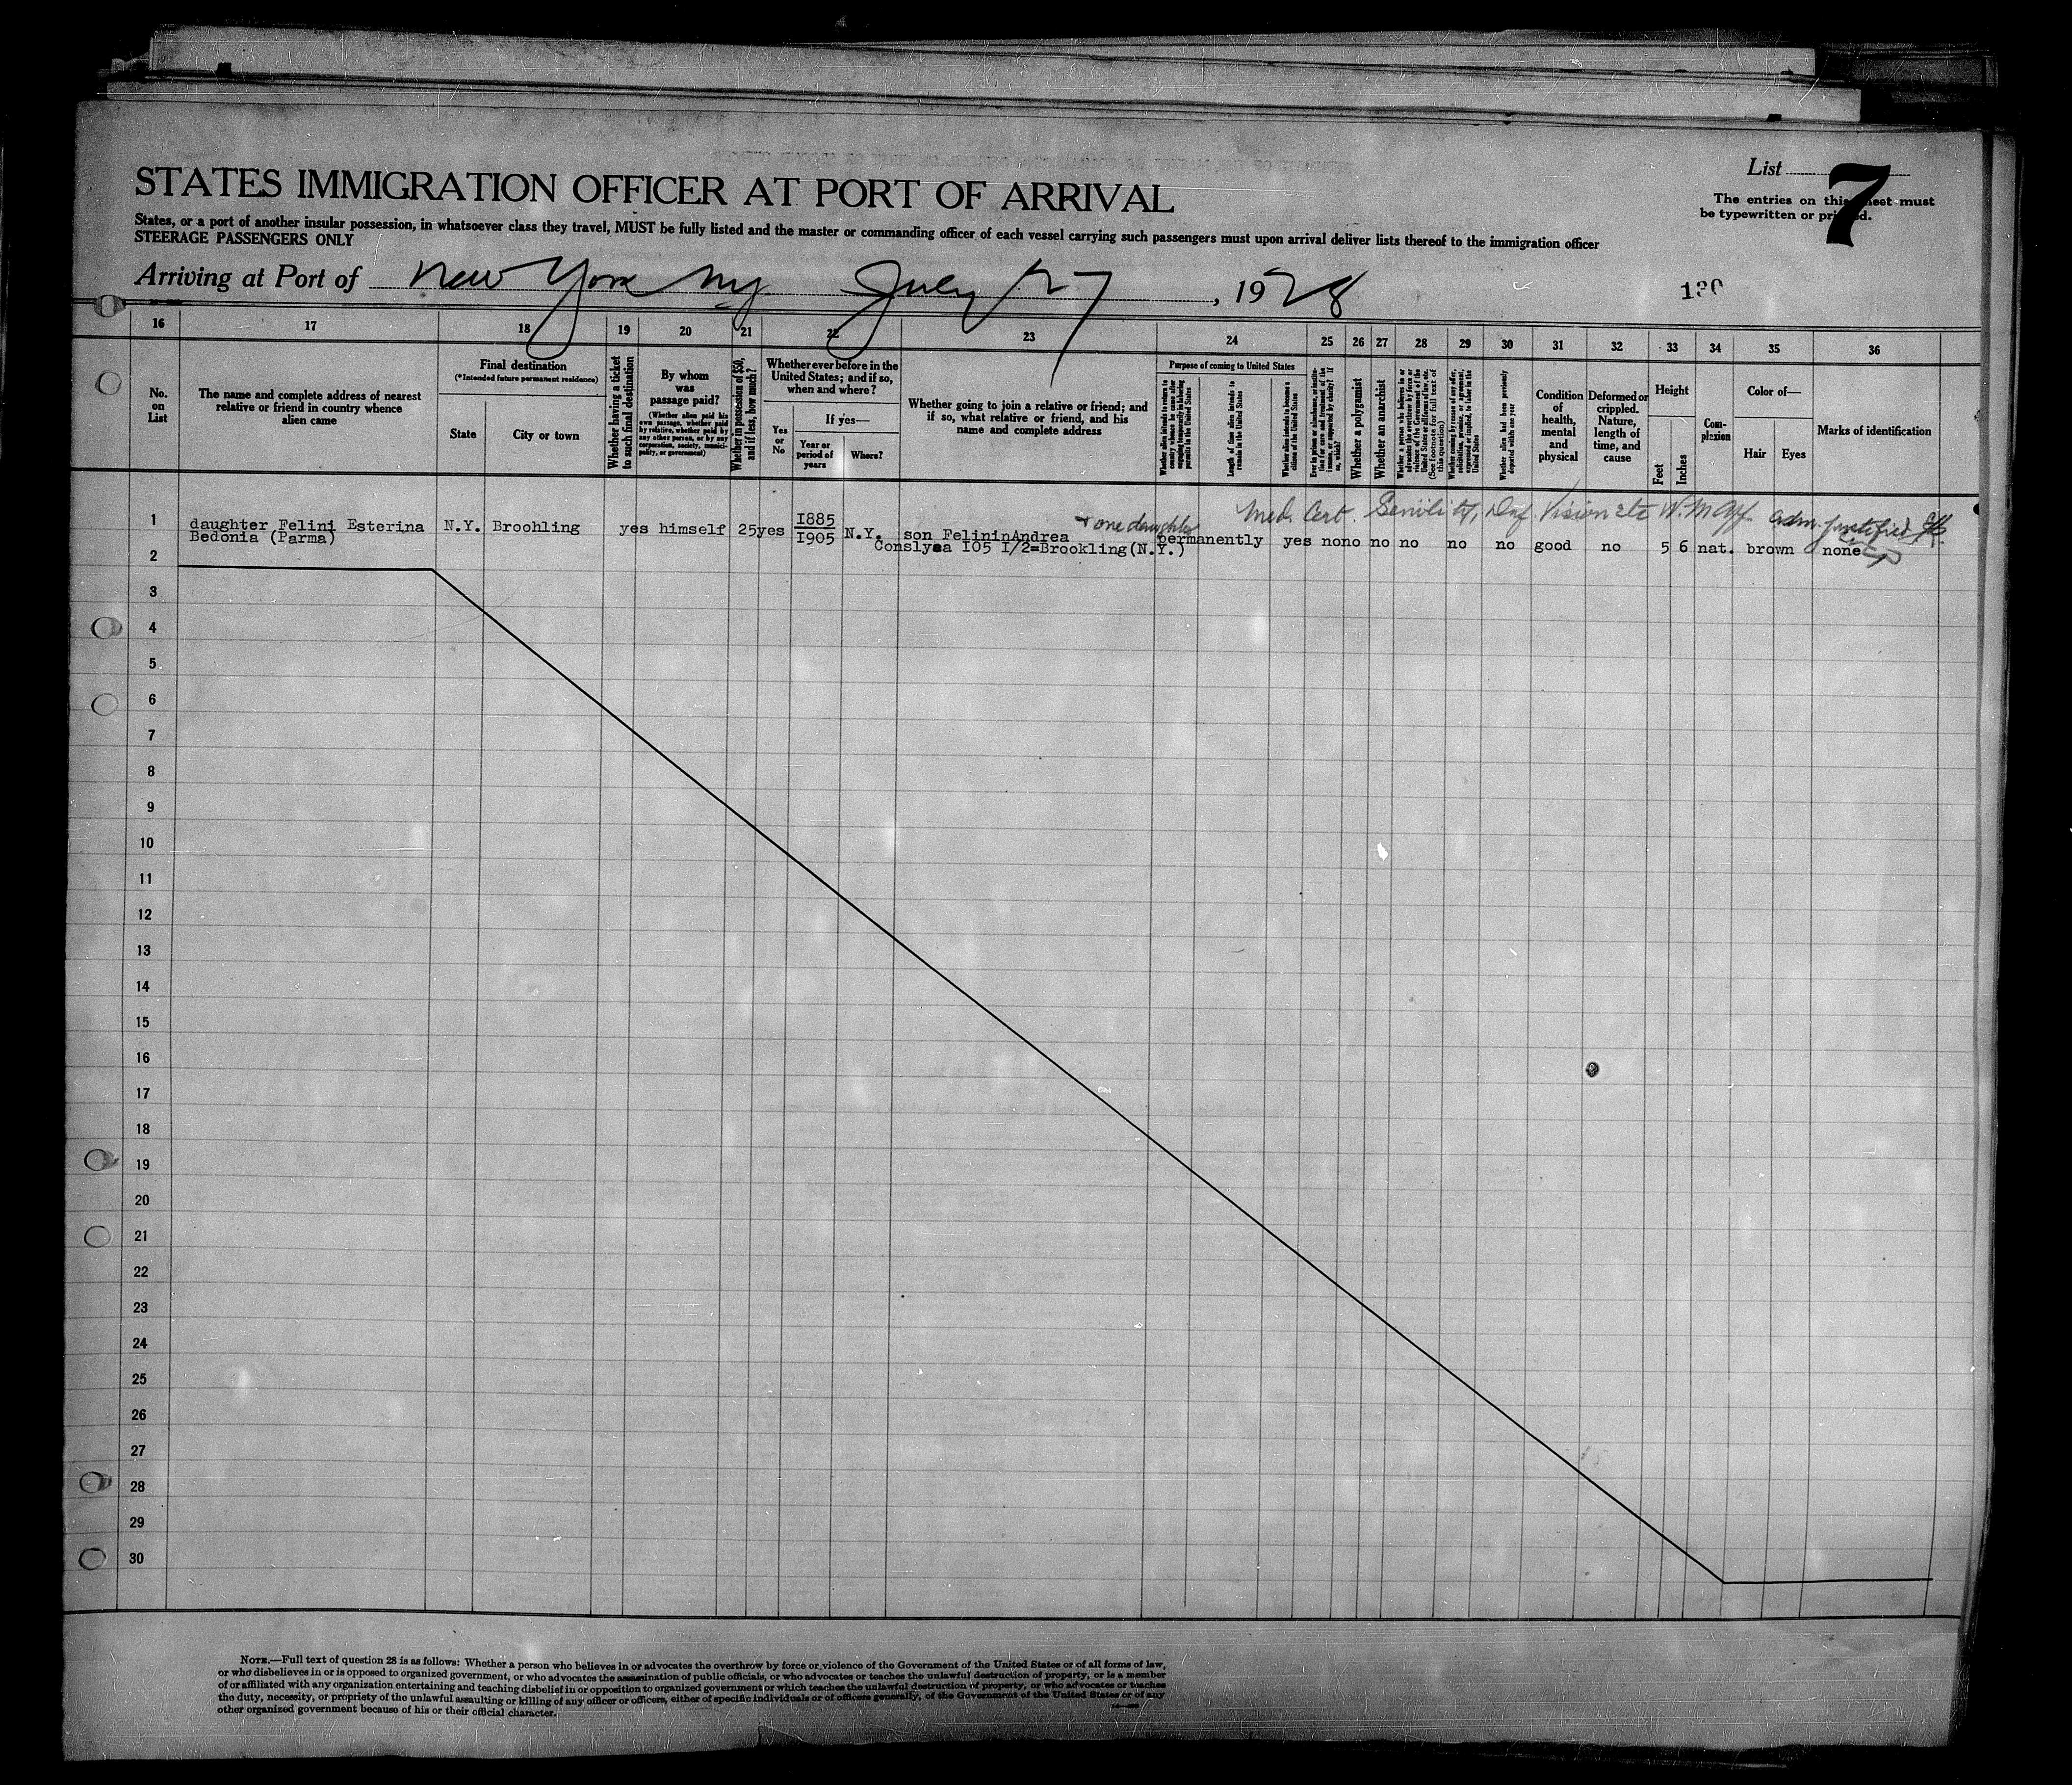 List 7
STATES IMMIGRATION OFFICER AT PORT OF ARRIVAL
The entries on this sheet must
be typewritten or printed.
States, or a port of another insular possession, in whatsoever class they travel, MUST be fully listed and the master or commanding officer of each vessel carrying such passengers must upon arrival deliver lists thereof to the immigration officer
STEERAGE PASSENGERS ONLY
Arriving at Port of New York Ny July 27, 1928
130
16 17 18 19 20 21 22 23 24 25 26 27 28 29 30 31 32 33 34 35 36
No.
on
List
The name and complete address of nearest
relative or friend in country whence
alien came
Final destination
(*Intended future permanent residence)
State
City or town
Whether having a ticket
to such final destination
By whom
was
passage paid?
(Whether alien paid his
own passage, whether paid
by relative, whether paid by
any other person, or by any
corporation, society, munici-
pality, or government)
Whether in possession of $50,
and if less, how much?
Whether ever before in the
United States; and if so,
when and where?
Yes
or
No
If yes—
Year or
period of
years
Where?
Whether going to join a relative or friend; and
if so, what relative or friend, and his
name and complete address
Purpose of coming to United States
Whether alien intends to return to
country whence he came after
engaging temporarily in laboring
pursuits in the United States
Length of time alien intends to
remain in the United States
Whether alien intends to become a
citizen of the United States
Ever in prison or almshouse, or institu-
tion for care and treatment of the
insane, or supported by charity? If
so, which?
Whether a polygamist
Whether an anarchist
Whether a person who believes in or
advocates the overthrow by force or
violence of the Government of the
United States or all forms of law, etc.
(See footnote for full text of
this question)
Whether coming by reason of any offer,
solicitation, promise, or agreement,
expressed or implied, to labor in the
United States
Whether alien had been previously
deported within one year
Condition
of
health,
mental
and
physical
Deformed or
crippled.
Nature,
length of
time, and
cause
Height
Feet
Inches
Com-
plexion
Color of—
Hair
Eyes
Marks of identification
+ one daughter Med. Cert. Senility, Def. Vision etc
1 daughter Felini Esterina N.Y. Broohling yes himself 25 yes 1885 N.Y. son FelininAndrea permanently yes no no no no no no good no 5 6 nat. brown none
Bedonia (Parma) 1905 Conslyea I05 I/2=Brookling(N.Y.)
2
3
4
5
6
7
8
9
10
11
12
13
14
15
16
17
18
19
20
21
22
23
24
25
26
27
28
29
30
NOTE.—Full text of question 28 is as follows: Whether a person who believes in or advocates the overthrow by force or violence of the Government of the United States or of all forms of law,
or who disbelieves in or is opposed to organized government, or who advocates the assassination of public officials, or who advocates or teaches the unlawful destruction of property, or is a member
of or affiliated with any organization entertaining and teaching disbelief in or opposition to organized government or which teaches the unlawful destruction of property, or who advocates or teaches
the duty, necessity, or propriety of the unlawful assaulting or killing of any officer or officers, either of specific individuals or of officers generally, of the Government of the United States or of any
other organized government because of his or their official character.